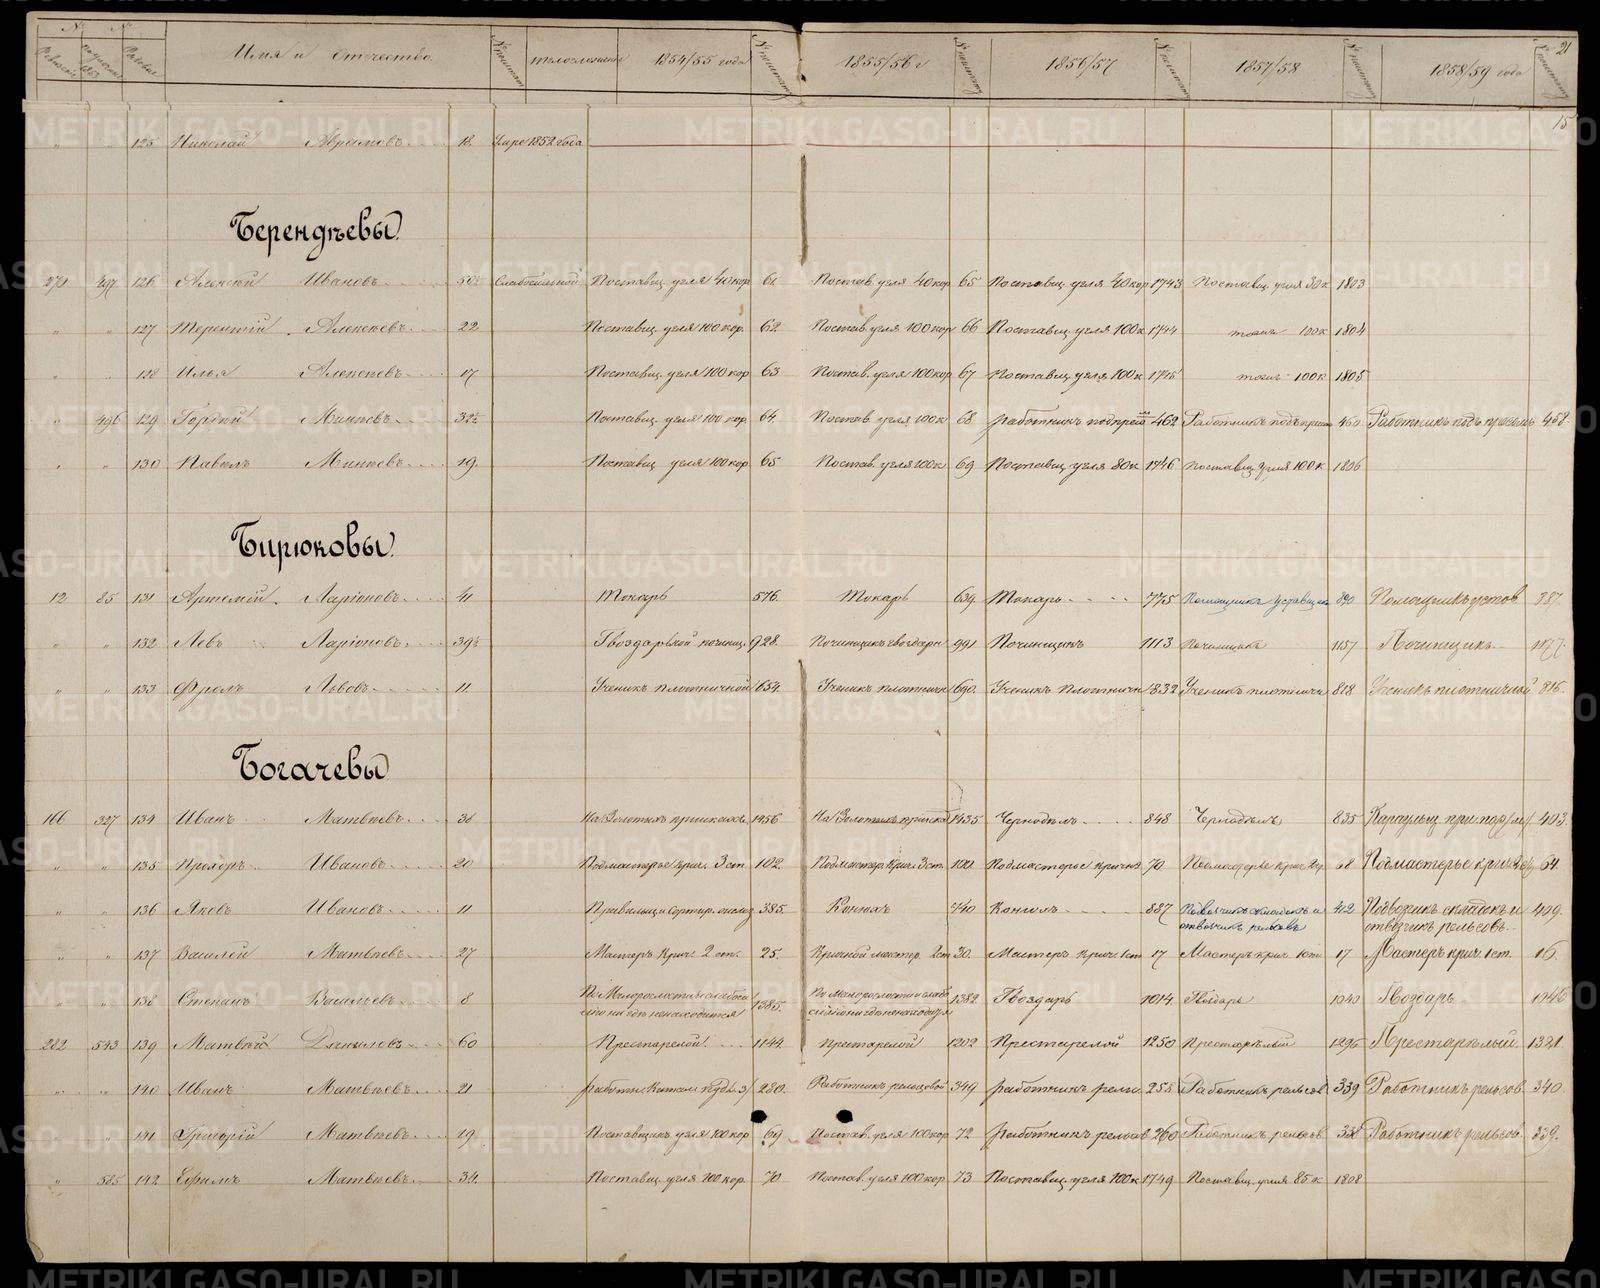 № № 21
Имя и отчество телосложение 1854/55 года 1855/56 г 1856/57 1857/58 1858/59 года
15
" " 125 Николай Абрамовъ 18 Умре 1852 года
Берендѣевы
271 497 126 Алексѣй Ивановъ 50½ Слабосильной Поставщ. угля 40 кор 61 Постав. угля 40 кор 65 Поставщ. угля 40 кор 1743 Поставщ. угля 30 к 1803
" " 127 Терентiй Алексѣевъ 22 Поставщ. угля 100 кор. 62 Постав. угля 100 кор 66 Поставщ. угля 100 к 1744 тоже 100 к 1804
" " 128 Илья Алексѣевъ 17 Поставщ. угля 100 кор 63 Постав. угля 100 кор 67 Поставщ. угля 100 к 1745 тоже 100 к 1805
" 496 129 Гордѣй Минѣевъ 32½ Поставщ. угля 100 кор 64 Постав. угля 100 к 68 работникъ 462 Работникъ 460 Работникъ 458
" " 130 Павелъ Минѣевъ 19 Поставщ угля 100 кор 65 Постав. угля 100 к 69 Поставщ угля 80 к 1746 Поставщ. угля 100 к 1806
Бирюковы
12 85 131 Артемiй Ларiоновъ 41 Токарь 576 Токарь 639 Токарь 775 Помощникъ Уставщика 890 Помощникъ устав 887
" " 132 Левъ Ларiоновъ 39½ Гвоздарной починщ. 928 Починщикъ гвоздарн 991 Починщикъ 1113 Починщикъ 1157 Починщикъ 1177
" " 133 Фролъ Львовъ 11 Ученикъ плотничной 654 Ученикъ плотничн 690 Ученикъ плотничн 832 Ученикъ плотничн 818 Ученикъ плотничной 816
Богачевы
166 327 134 Иванъ Матвѣевъ 38 На Золотыхъ прiискахъ 1456 На Золотыхъ прiиска 1435 Чернодѣлъ 848 Чернодѣлъ 835 Караульщ при 403
" " 135 Прохоръ Ивановъ 20 Подмастерье крич. 3 ст 102 Подмастер. Крич. 3 ст 100 Подмастерье кричн 70 Подмастерье крич 68 Подмастерье крич 64
" " 136 Яковъ Ивановъ 11 385 Конюхъ 740 Конюхъ 887 Подвозчикъ складокъ и 412 Подвозчикъ складокъ и 409
отвозчикъ рельсовъ отвозчикъ рельсовъ
" " 137 Василей Матвѣевъ 27 Мастеръ Крич. 2 ст. 25 Кричной мастер. 2 ст 30 Мастеръ Крич. 1 ст 17 Мастеръ крич. 1 ст 17 Мастеръ крич. 1 ст. 16
" " 138 Степанъ Васильевъ 8 По Малорослости и слабо 1385 По Малорослости и слабо 1382 Гвоздарь 1014 Гвоздарь 1040 Гвоздарь 1046
силiю нигдѣ ненаходится силiю нигдѣ ненаходится
282 543 139 Матвѣй Даниловъ 60 Престарелой 1144 Престарелой 1202 Престарелой 1250 Престарѣлый 1296 Престарѣлый 1321
" " 140 Иванъ Матвѣевъ 21 280 Работникъ рельсовой 349 работникъ рельс 255 Работникъ рельсов 339 Работникъ рельсов 340
" 141 Григорiй Матвѣевъ 19 Поставщикъ угля 100 кор 69 Постав. угля 100 кор 72 работникъ рельсов 260 Работникъ рельсов 338 Работникъ рельсов. 339
" 525 142 Ефимъ Матвѣевъ 39 Поставщ. угля 100 кор. 70 Постав. угля 100 кор 73 Поставщ. угля 100 к 1749 Поставщ. угля 85 к 1808
METRIKI.GASO-URAL.RU